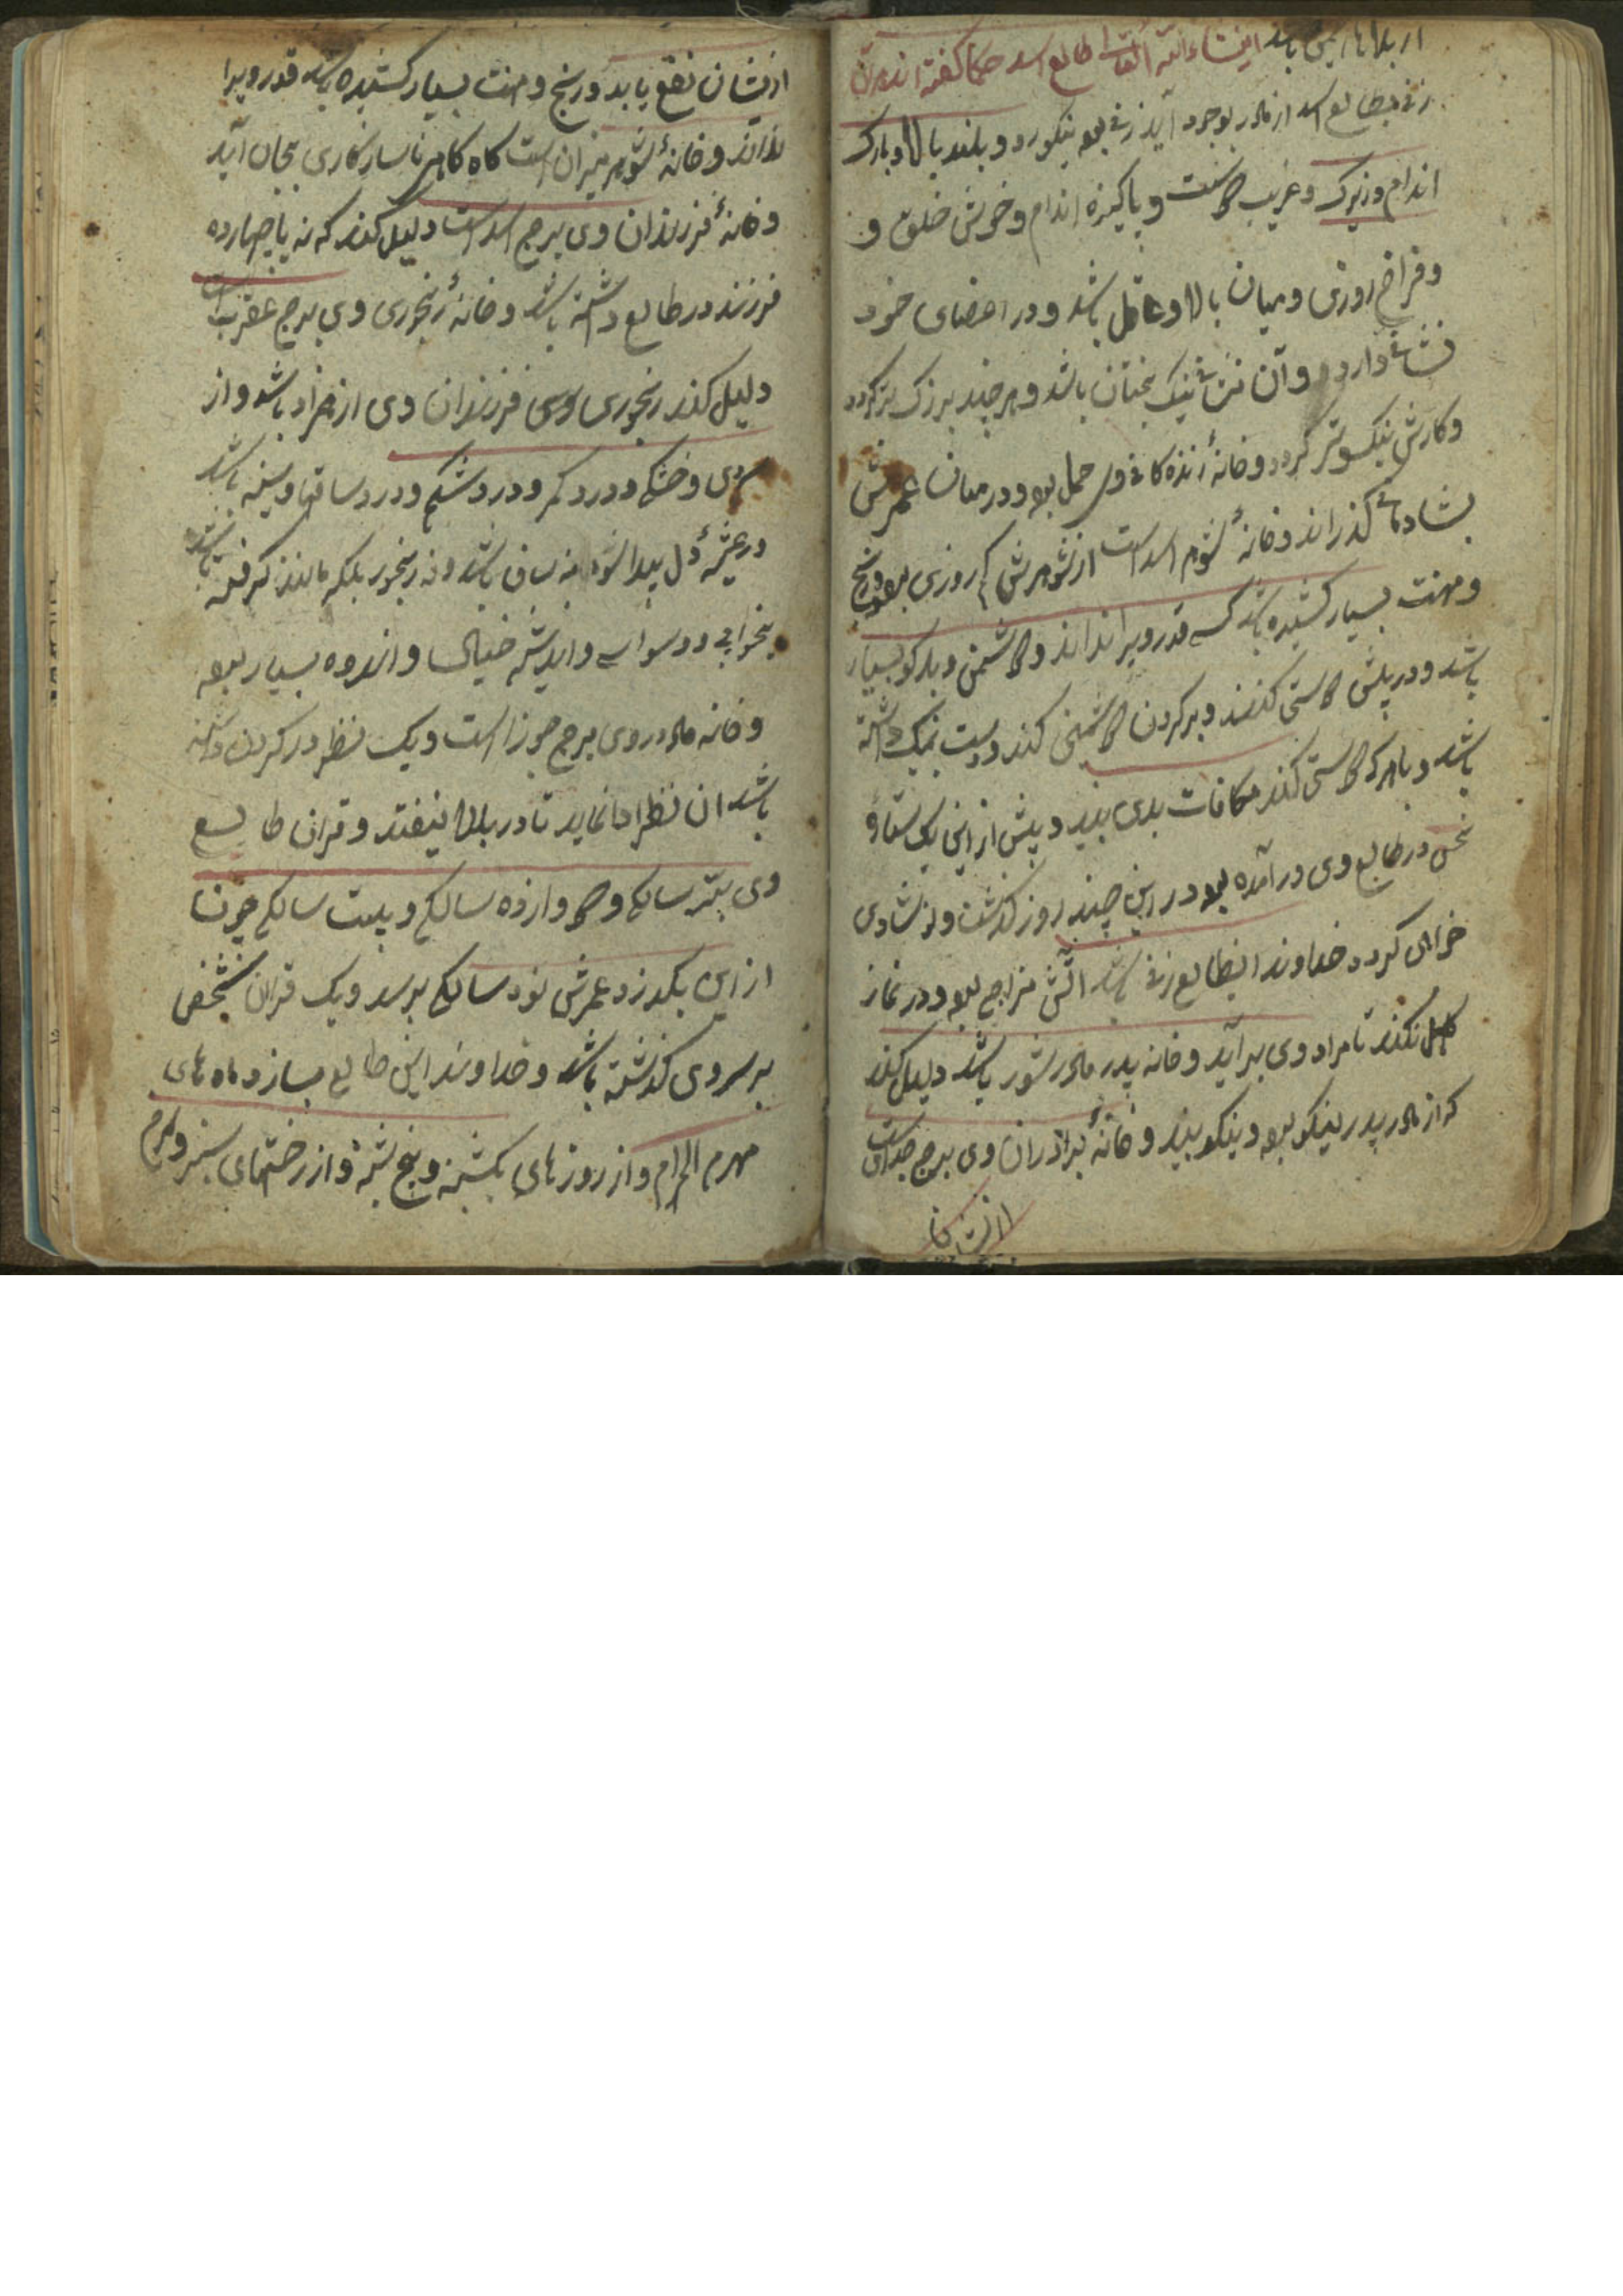 از بلاها ایمن باشد انشاءالله تعالی طالع اسد حکما گفته اند هر آن
زنی بطالع اسد از مادر بوجود آید زنی بود نیکو رو و بلند بالا و بارک
اندام و زیرک و غریب دوست و پاکیزه اندام و خوش خلق و
و فراخ روزی و میان بالا و عاقل باشد و در اعضای خود
نشانی دارد و آن نشانی نیک بختان باشد و هر چند بزرک تر کردد
و کارش نیکوتر کردد و خانهٔ زنده کانی وی حمل بود و در میان عمرش
بشادمانی کذراند و خانهٔ شوم اسد است از شوهرش کم روزی بود و رنج
و مهنت بسیار کشیده باشد کسی قدر ویرا نداند و دشمن و بدکو بسیار
باشد و در پیش دوستی کنند و بر کردن دشمنی کنند دوست نیک داشته
باشد و با هر که دوستی کند مکافات بدی بیند و پیش از این یک ستارهٔ
نحس در طالع وی در آمده بود در این چند روز کذشت و از شادی
خرالی کردد خداوند این طالع زنی باشد آتش مزاج بود و در نماز
کاهل نکند تا مراد وی برآید و خانه پدر مادر ثور باشد دلیل کند
که از مادر پدر نیکو بود و نیکو بیند و خانهٔ برادران وی برج جدی است
از ایشان
از ایشان نفع یابد و رنج و مهنت بسیار کشیده باشد قدر ویرا
ندانند و خانهٔ شوهر میزان است کاه کاهی ناسازکاری بجان آید
و خانهٔ فرزندان وی برج اسد است دلیل کند که نه یا چهارده
فرزند در طالع داشته باشد و خانهٔ رنجوری وی برج عقرب است
دلیل کند رنجوری وی فرزندان وی از همزاد باشد و از
سردی و خشکی و درد کمر و درد شکم و درد ساقها و سینه باشد
و رعشهٔ دل پیدا شود نه سان باشد و نه رنجور بلکه مانند کرفته باشد
بیخوابی و وسواسی و اندیشه خیالی و اندوه بسیار بود
و خانه مادر وی برج جوزا است و یک نظر در کردن داشته
باشد آن نظر ادا نماید تا در بلا نیفتد و قران طالع
وی بیشتر سالکی و دوازده سالکی و بیست سالکی چون
از این بکذرد عمرش نود سالکی برسد و یک قران شخص
بر سر وی کذشته باشد و خداوند این طالع بسازد ماه های
مهرم الحرام و از روزهای یکشنبه و پنج شنبه و از رختهای سبز و